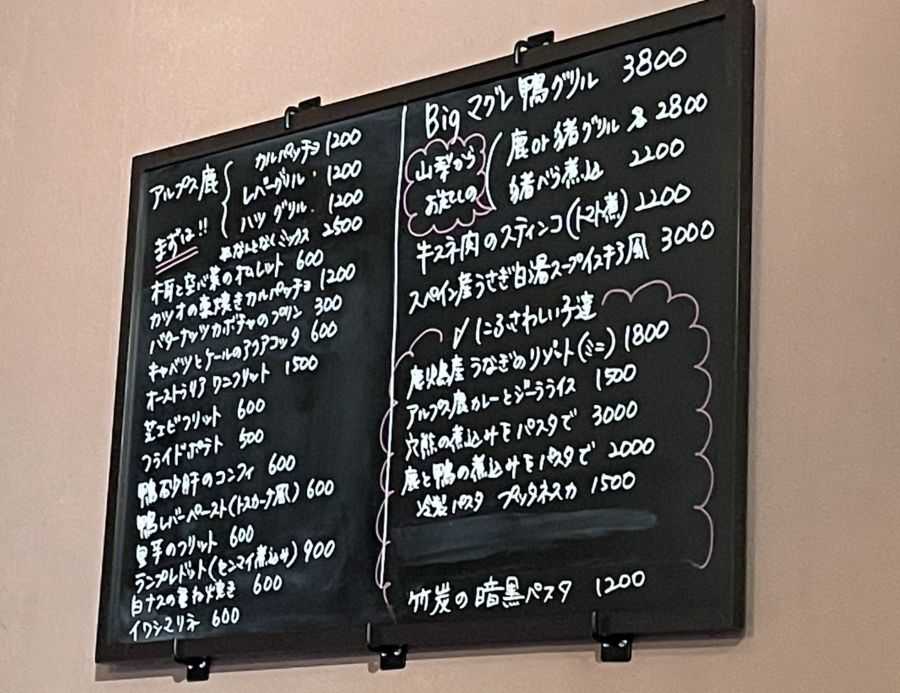 アルプス鹿
カルパッチョ 1200
レバーグリル・1200
ハツグリル・1200
まずは!!
なんとなくミックス 2500
木耳と空心菜のオムレット 600
カツオの藁焼きカルパッチョ 1200
バターナッツカボチャのプリン 300
キャベツとケールのアクアコッタ 600
オーストラリア ワニフリット 1500
芝エビフリット 600
フライドポテト 500
鴨砂肝のコンフィ 600
鴨レバーペースト(トスカーナ風) 600
里芋のフリット 600
ランプレドット(センマイ煮込み) 900
白ナスの重ね焼き 600
イワシマリネ 600
Big マグレ鴨グリル 3800
山梨から
おたしの
鹿or猪グリル 各2800
猪べら煮込 2200
牛スネ肉のスティンコ(トマト煮) 2200
スペイン産うさぎ白湯スープイスキテ3風 3000
にふさわしい子達
鹿児島産うなぎのリゾット(ミニ) 1800
アルプス鹿カレーとジーラライス 1500
穴熊の煮込みをパスタで 3000
鹿と鴨の煮込みをパスタで 2000
冷製パスタ プッタネスカ 1500
竹炭の暗黒パスタ 1200